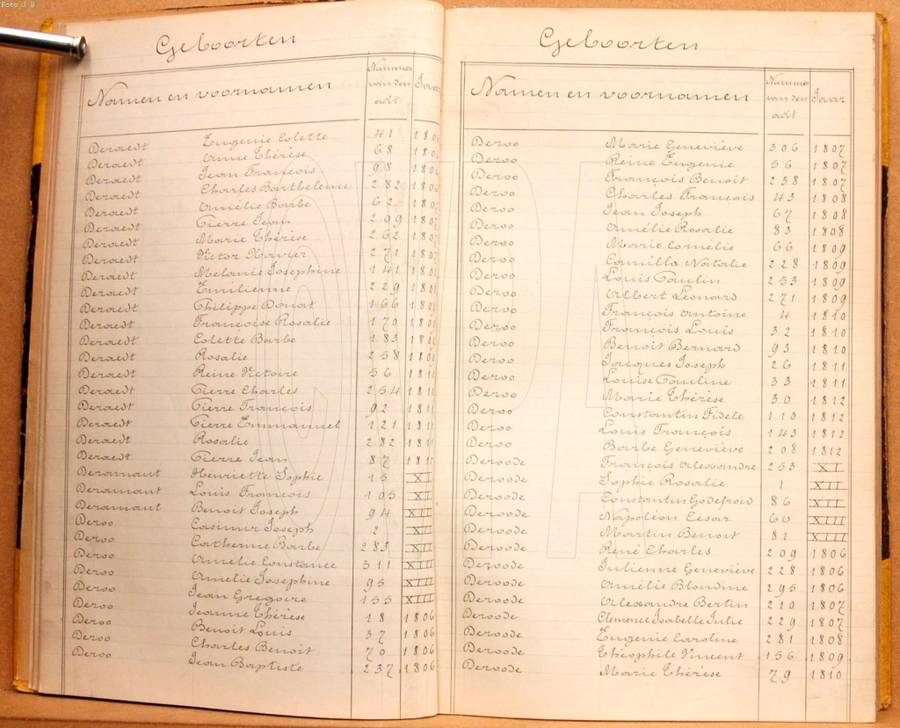 Foto J B
Geboorten
Namen en voornamen
Nummer van den akt
Jaar
Deraedt Eugenie Colette 41
Deraedt Anne Thérèse 68
Deraedt Jean François 98
Deraedt Charles Barthelemi 282
Deraedt Amélie Barbe 62
Deraedt Pierre Jean 299
Deraedt Marie Thérèse 262
Deraedt Victor Xavier 271
Deraedt Melanie Josephine 141
Deraedt Emilienne 229
Deraedt Philippe Donat 166
Deraedt Françoise Rosalie 170
Deraedt Colette Barbe 183
Deraedt Rosalie 258
Deraedt Reine Victoire 56
Deraedt Pierre Charles 254
Deraedt Pierre François 92
Deraedt Pierre Emmanuel 121
Deraedt Rosalie 282
Deraedt Pierre Jean 87
Deramaut Henriette Sophie 15 XI
Deramaut Louis François 105 XII
Deramaut Benoit Joseph 94 XIII
Deroo Casimir Joseph 2 XII
Deroo Catherine Barbe 283 XII
Deroo Amelie Constance 311 XII
Deroo Amelie Josephine 95 XIII
Deroo Jean Gregoire 155 XIII
Deroo Jeanne Thérèse 18 1806
Deroo Benoit Louis 37 1806
Deroo Charles Benoit 70 1806
Deroo Jean Baptiste 237 1806
Geboorten
Namen en voornamen
Nummer van den akt
Jaar
Deroo Marie Geneviève 306 1807
Deroo Reine Eugenie 56 1807
Deroo François Benoit 258 1807
Deroo Charles François 43 1808
Deroo Jean Joseph 67 1808
Deroo Amélie Rosalie 83 1808
Deroo Marie Cornélie 66 1809
Deroo Camilla Natalie 228 1809
Deroo Louis Paulin 253 1809
Deroo Albert Leonard 271 1809
Deroo François Antoine 4 1810
Deroo François Louis 32 1810
Deroo Benoit Bernard 93 1810
Deroo Jacques Joseph 26 1811
Deroo Louise Pauline 33 1811
Deroo Marie Thérèse 30 1812
Deroo Constantin Fidele 110 1812
Deroo Louis François 143 1812
Deroo Barbe Geneviève 208 1812
Deroode François Alexandre 253 XI
Deroode Sophie Rosalie 1 XII
Deroode Constantin Godefroid 86 XII
Deroode Napoléon Cesar 60 XIII
Deroode Martin Benoit 81 XIII
Deroode René Charles 209 1806
Deroode Julienne Geneviève 228 1806
Deroode Amélie Blondine 295 1806
Deroode Alexandre Bertin 210 1807
Deroode Clemence Isabelle Julie 229 1807
Deroode Eugenie Caroline 281 1808
Deroode Théophile Vincent 156 1809
Deroode Marie Thérèse 79 1810